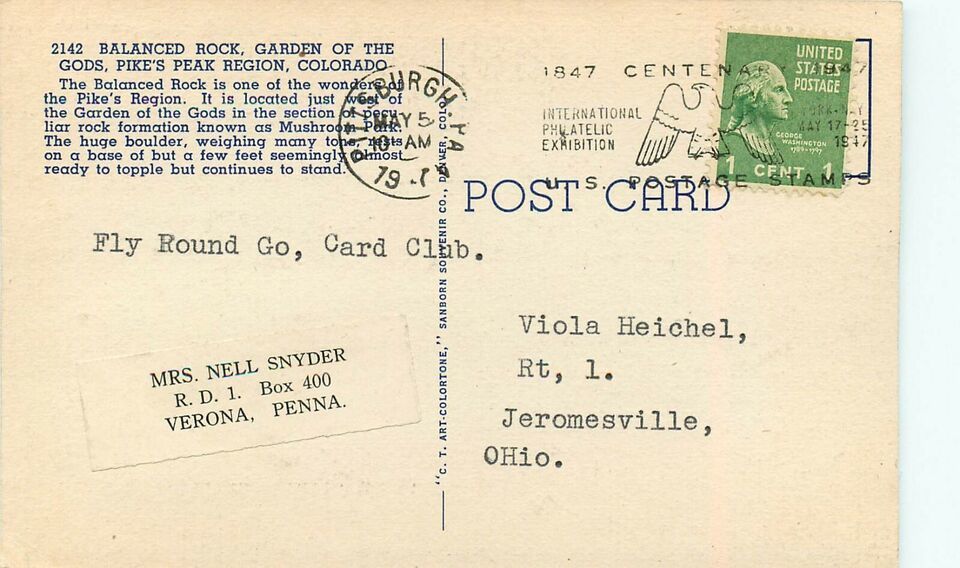 2142 BALANCED ROCK, GARDEN OF THE
GODS, PIKE'S PEAK REGION, COLORADO
The Balanced Rock is one of the wonders of
the Pike's Region. It is located just west of
the Garden of the Gods in the section of pecu-
liar rock formation known as Mushroom Park.
The huge boulder, weighing many tons, rests
on a base of but a few feet seemingly almost
ready to topple but continues to stand.
PITTSBURGH, PA
MAY 5
AM
19
1847 CENTENARY 1947
INTERNATIONAL
PHILATELIC
EXHIBITION
MAY 17-25
1947
U. S. POSTAGE STAMPS
UNITED
STATES
POSTAGE
GEORGE
WASHINGTON
1789-1797
1 CENT 1
POST CARD
"C. T. ART-COLORTONE," SANBORN SOUVENIR CO., DENVER, COLO.
Fly Round Go, Card Club.
MRS. NELL SNYDER
R. D. 1. Box 400
VERONA, PENNA.
Viola Heichel,
Rt, 1.
Jeromesville,
OHio.